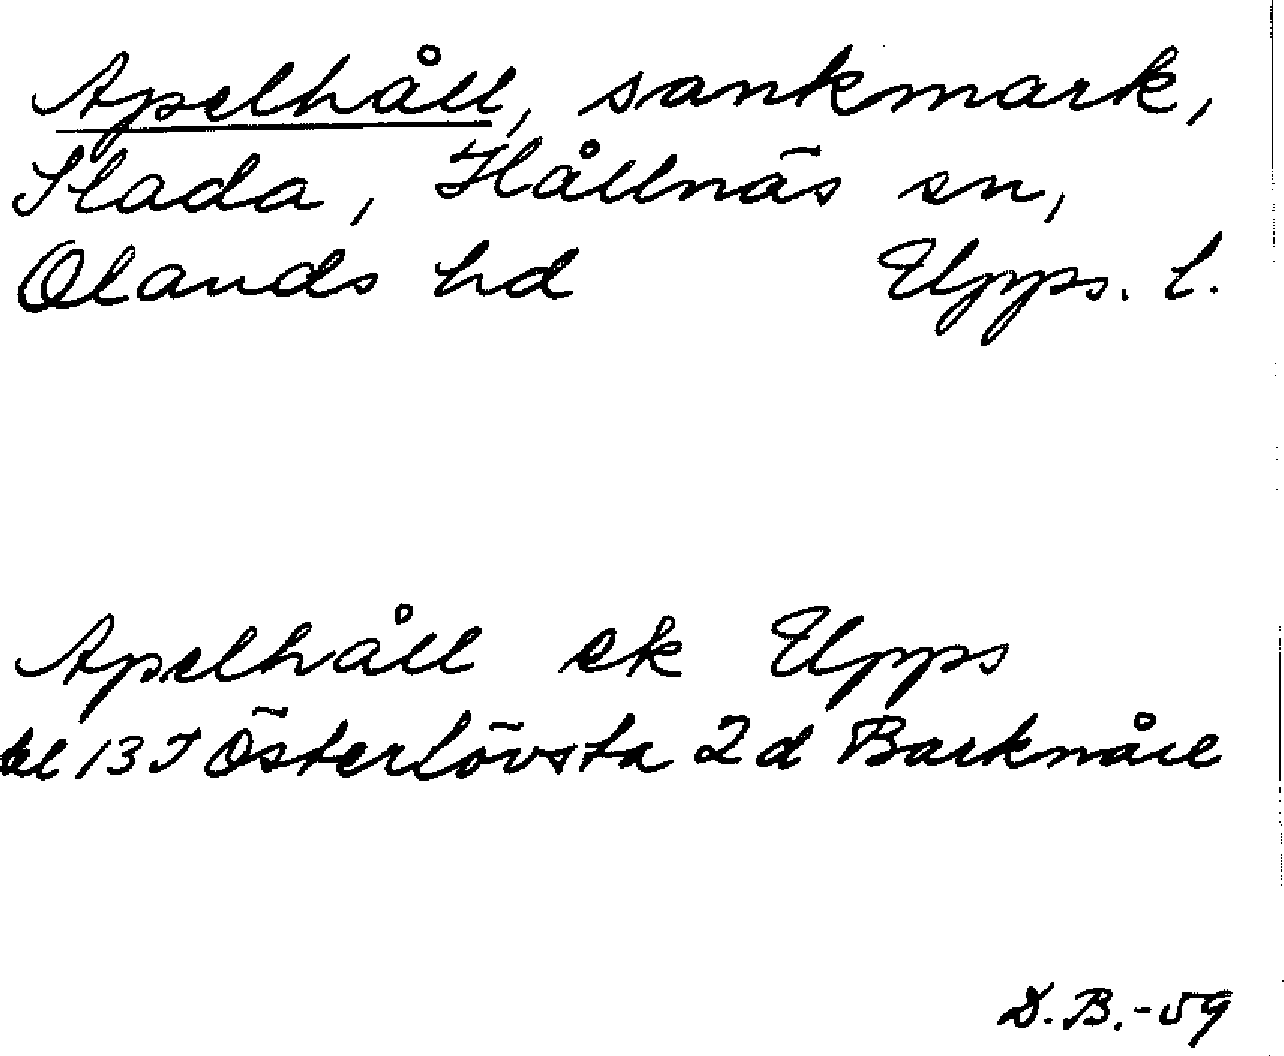 Apelhåll, sankmark,
Slada, Hållnäs sn,
Olands hd Upps. l.
Apelhåll ek Upps
bl 13 I Österlövsta 2d Barknåre
D.B.-59